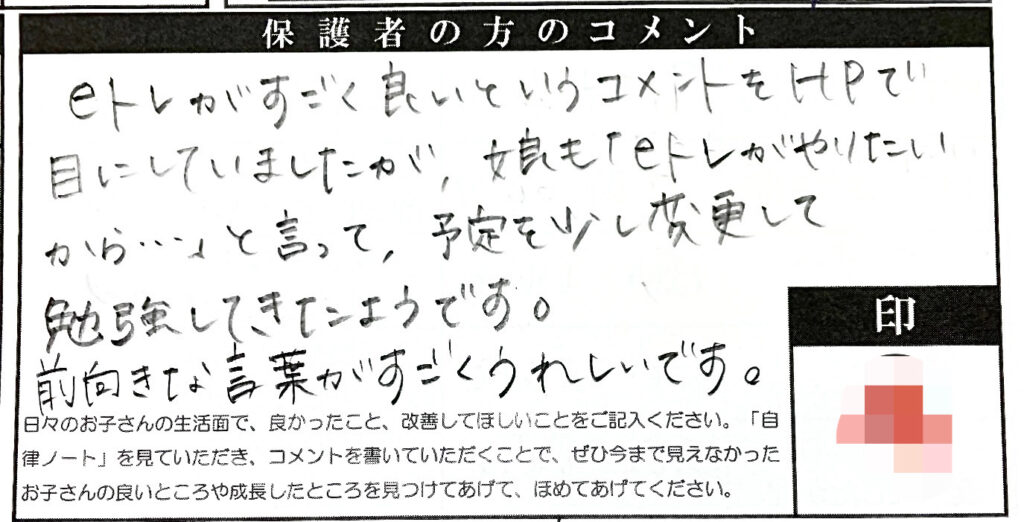 保護者の方のコメント
eトレがすごく良いというコメントをHPで
目にしていましたが、娘も「eトレがやりたい
から…」と言って、予定を少し変更して
勉強してきたようです。
前向きな言葉がすごくうれしいです。
印
日々のお子さんの生活面で、良かったこと、改善してほしいことをご記入ください。「自
律ノート」を見ていただき、コメントを書いていただくことで、ぜひ今まで見えなかった
お子さんの良いところや成長したところを見つけてあげて、ほめてあげてください。